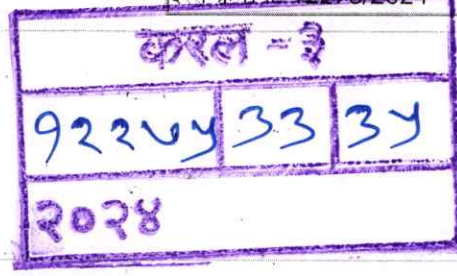 करल - ३
१२२७५ ३३ ३५
२०२४